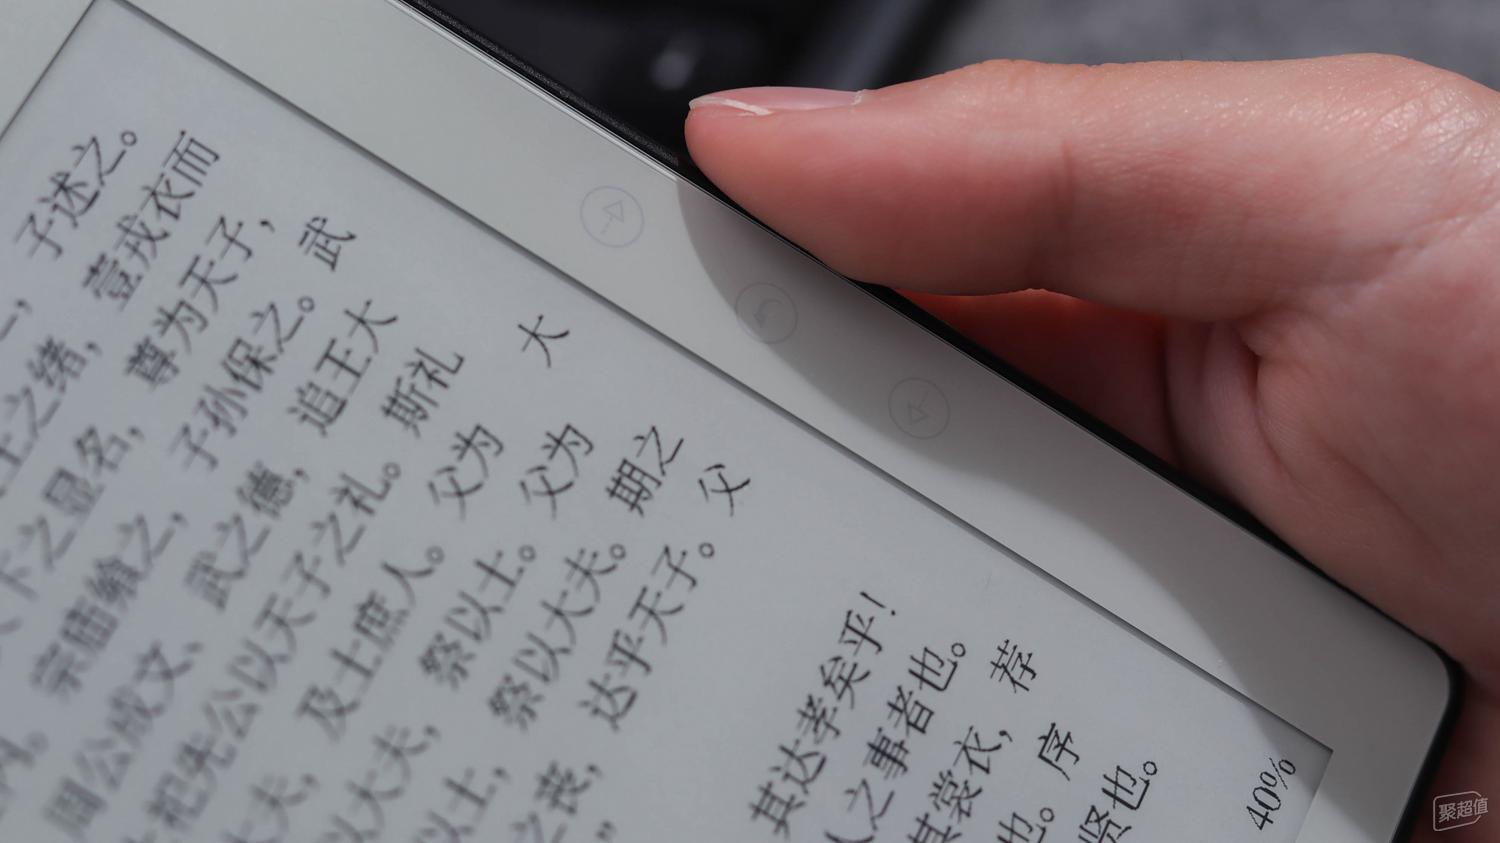 子述之。
王之绪，壹戎衣而
下之显名，尊为天子，
内。宗庙飨之，子孙保之。武
周公成文、武之德，追王大
上祀先公以天子之礼。斯礼
大夫，及士庶人。父为大
以大夫，祭以士。父为
以士，祭以大夫。期之
之丧，达乎天子。父
”
其达孝矣乎！
人之事者也。
其裳衣，荐
也。序
贤也。
40%
聚超值